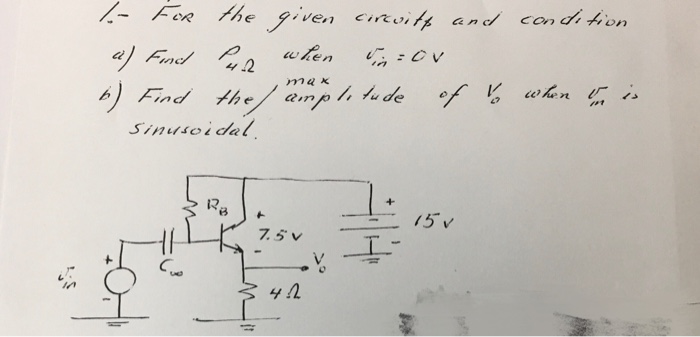 1.- FOR the given circuits and condition
a) Find P4Ω when vin = 0V
max
b) Find the/ amplitude of Vo when vin is
sinusoidal.
RB
+
+
7.5V
15V
-
-
C∞
Vo
+
vin
4Ω
-